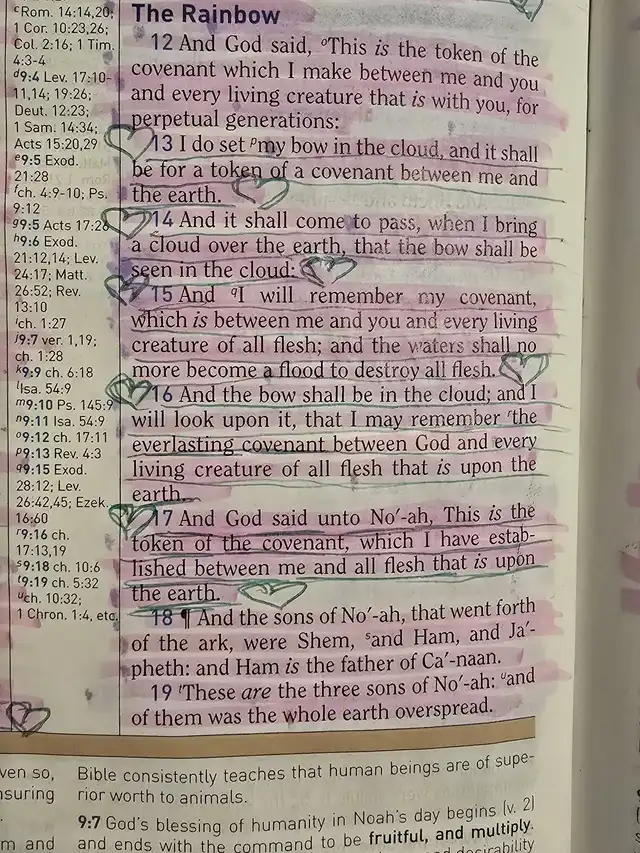 ᶜRom. 14:14,20;
1 Cor. 10:23,26;
Col. 2:16; 1 Tim.
4:3-4
ᵈ9:4 Lev. 17:10-
11,14; 19:26;
Deut. 12:23;
1 Sam. 14:34;
Acts 15:20,29
ᵉ9:5 Exod.
21:28
ᶠch. 4:9-10; Ps.
9:12
ᵍ9:5 Acts 17:26
ʰ9:6 Exod.
21:12,14; Lev.
24:17; Matt.
26:52; Rev.
13:10
ⁱch. 1:27
ʲ9:7 ver. 1,19;
ch. 1:28
ᵏ9:9 ch. 6:18
ˡIsa. 54:9
ᵐ9:10 Ps. 145:9
ⁿ9:11 Isa. 54:9
ᵒ9:12 ch. 17:11
ᵖ9:13 Rev. 4:3
q9:15 Exod.
28:12; Lev.
26:42,45; Ezek.
16:60
ʳ9:16 ch.
17:13,19
ˢ9:18 ch. 10:6
ᵗ9:19 ch. 5:32
ᵘch. 10:32;
1 Chron. 1:4, etc.
The Rainbow
12 And God said, ᵒThis is the token of the
covenant which I make between me and you
and every living creature that is with you, for
perpetual generations:
13 I do set ᵖmy bow in the cloud, and it shall
be for a token of a covenant between me and
the earth.
14 And it shall come to pass, when I bring
a cloud over the earth, that the bow shall be
seen in the cloud:
15 And qI will remember my covenant,
which is between me and you and every living
creature of all flesh; and the waters shall no
more become a flood to destroy all flesh.
16 And the bow shall be in the cloud; and I
will look upon it, that I may remember ʳthe
everlasting covenant between God and every
living creature of all flesh that is upon the
earth.
17 And God said unto No′-ah, This is the
token of the covenant, which I have estab-
lished between me and all flesh that is upon
the earth.
18 ¶ And the sons of No′-ah, that went forth
of the ark, were Shem, ˢand Ham, and Ja′-
pheth: and Ham is the father of Ca′-naan.
19 ᵗThese are the three sons of No′-ah: ᵘand
of them was the whole earth overspread.
ven so,
nsuring
m and
Bible consistently teaches that human beings are of supe-
rior worth to animals.
9:7 God's blessing of humanity in Noah's day begins (v. 2)
and ends with the command to be fruitful, and multiply.
desirability